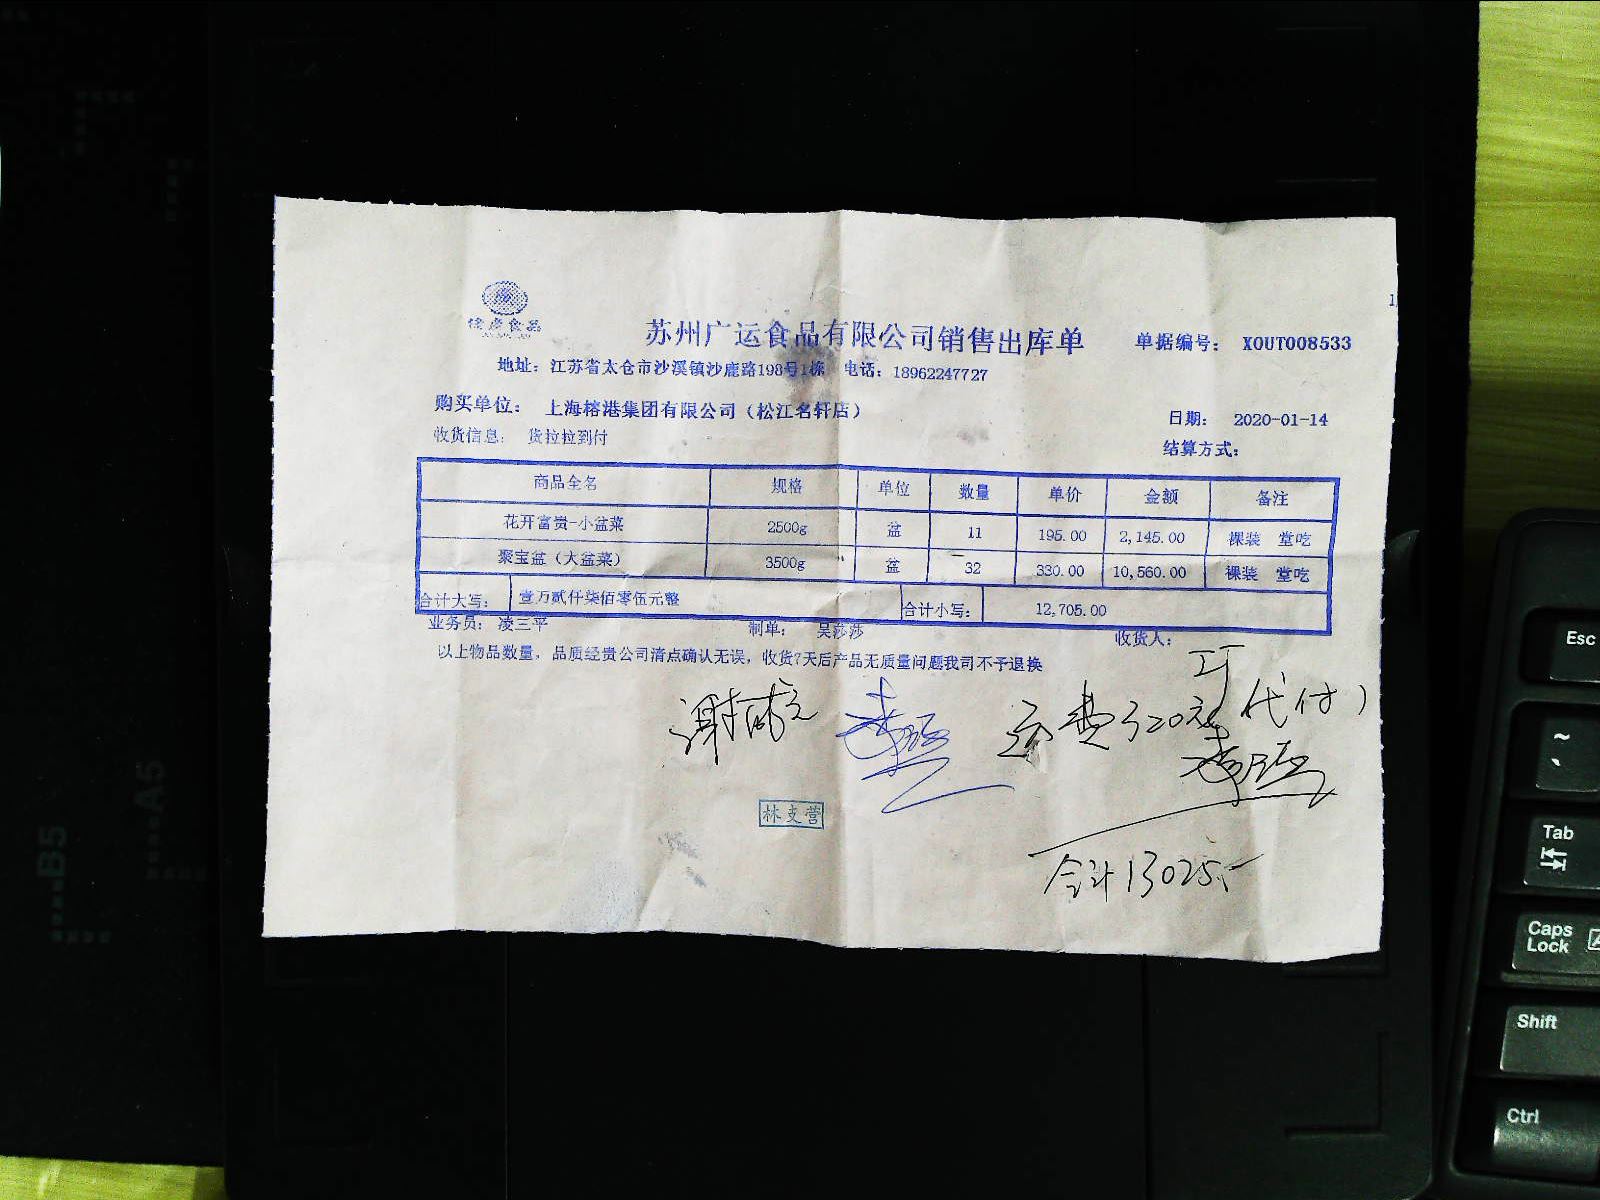 1
苏州广运食品有限公司销售出库单
单据编号： XOUT008533
地址：江苏省太仓市沙溪镇沙鹿路198号1栋 电话：18962247727
购买单位： 上海榕港集团有限公司（松江名轩店）
日期： 2020-01-14
收货信息： 货拉拉到付
结算方式：
商品全名 规格 单位 数量 单价 金额 备注
花开富贵-小盆菜 2500g 盆 11 195.00 2,145.00 裸装 堂吃
聚宝盆（大盆菜） 3500g 盆 32 330.00 10,560.00 裸装 堂吃
合计大写： 壹万贰仟柒佰零伍元整 合计小写： 12,705.00
业务员： 凌三平 制单： 吴莎莎 收货人：
以上物品数量，品质经贵公司清点确认无误，收货7天后产品无质量问题我司不予退换
运费320元 代付）
林支营
合计13025.-
B5
A5
Esc
~
Tab
Caps Lock
Shift
Ctrl